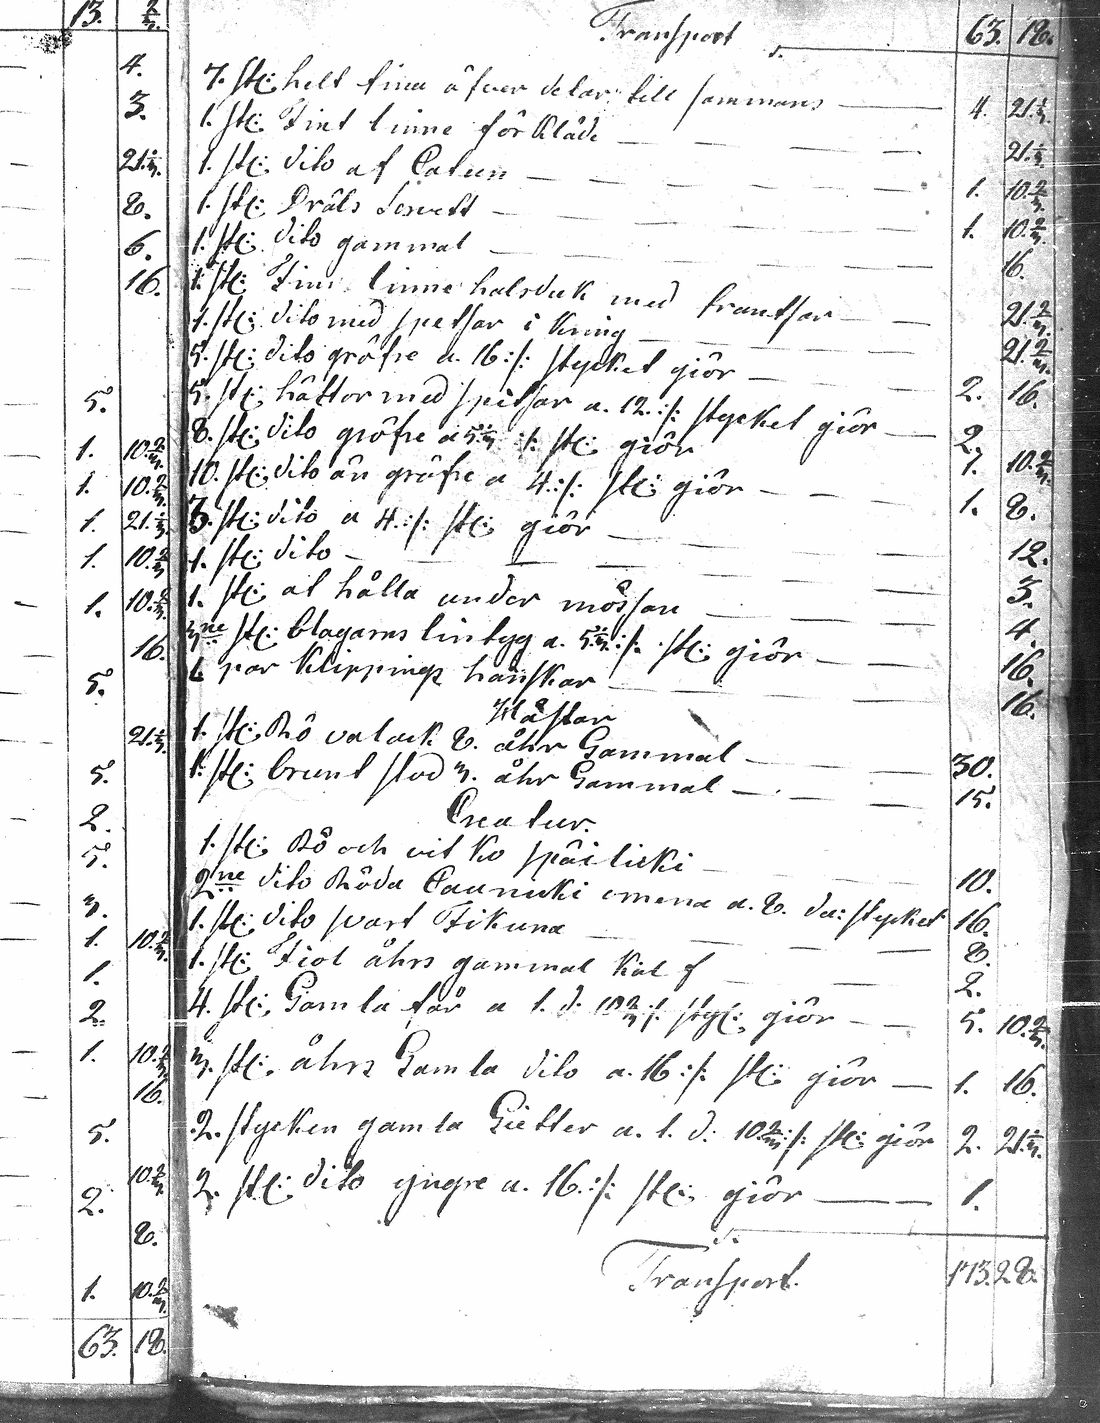 13. 2/3.
4.
3.
21.1/3.
8.
6.
16.
5.
1. 10.2/3.
1. 10.2/3.
1. 21.1/3.
1. 10.2/3.
1. 10.2/3.
16.
5.
21.1/3.
5.
2.
5.
3.
1. 10.2/3.
1.
2.
1. 10.2/3.
16.
5.
10.2/3.
2.
8.
1. 10.2/3.
63. 18.
Transport s. 63. 18.
7. st: helt fina öfver delar till sammans 4. 21.1/3.
1. st: Fint linne förkläde 21.1/3.
1. st: dito af Catun 1. 10.2/3.
1. st: Dräls Servett 1. 10.2/3.
1. st: dito gammal 16.
1. st: Fint linne halsduk med frantsar 21.1/3.
1. st: dito med spetsar i kring 21.1/3.
5. st: dito gröfre a. 16:/: stycket giör 2. 16.
5. st: hättor med spetsar a. 12.:/: stycket giör 2.
8. st: dito gröfre a 5.1/3 :/: st: giör 1. 10.2/3.
10. st: dito än gröfre a 4.:/: st: giör 1. 8.
3. st: dito a 4.:/: st: giör 12.
1. st: dito 3.
1. st: at hålla under mössan 4.
3ne st: blagarns lintyg a. 5.1/3:/: st: giör 16.
1 par Klippings hanskar 16.
Hästar
1. st: Rö valack 8. åhr Gammal 30.
1. st: brunt stod 3. åhr Gammal 15.
Creatur.
1. st: Rö och vit ko 10.
2ne dito Röda omena a. 8. da: stycket 16.
1. st: dito svart Fikuna 8.
1. st: Fiol åhrs gammal kalf 2.
4. st: Gamla får a 1. d: 10.2/3:/: styc: giör 5. 10.2/3.
3. st: åhrs Gamla dito a. 16:/: st: giör 1. 16.
2. stycken gamla Gietter a. 1. d: 10.2/3:/: st: giör 2. 21.1/3.
2. st: dito yngre a. 16.:/: st: giör 1.
s.
Transport. 173. 28.